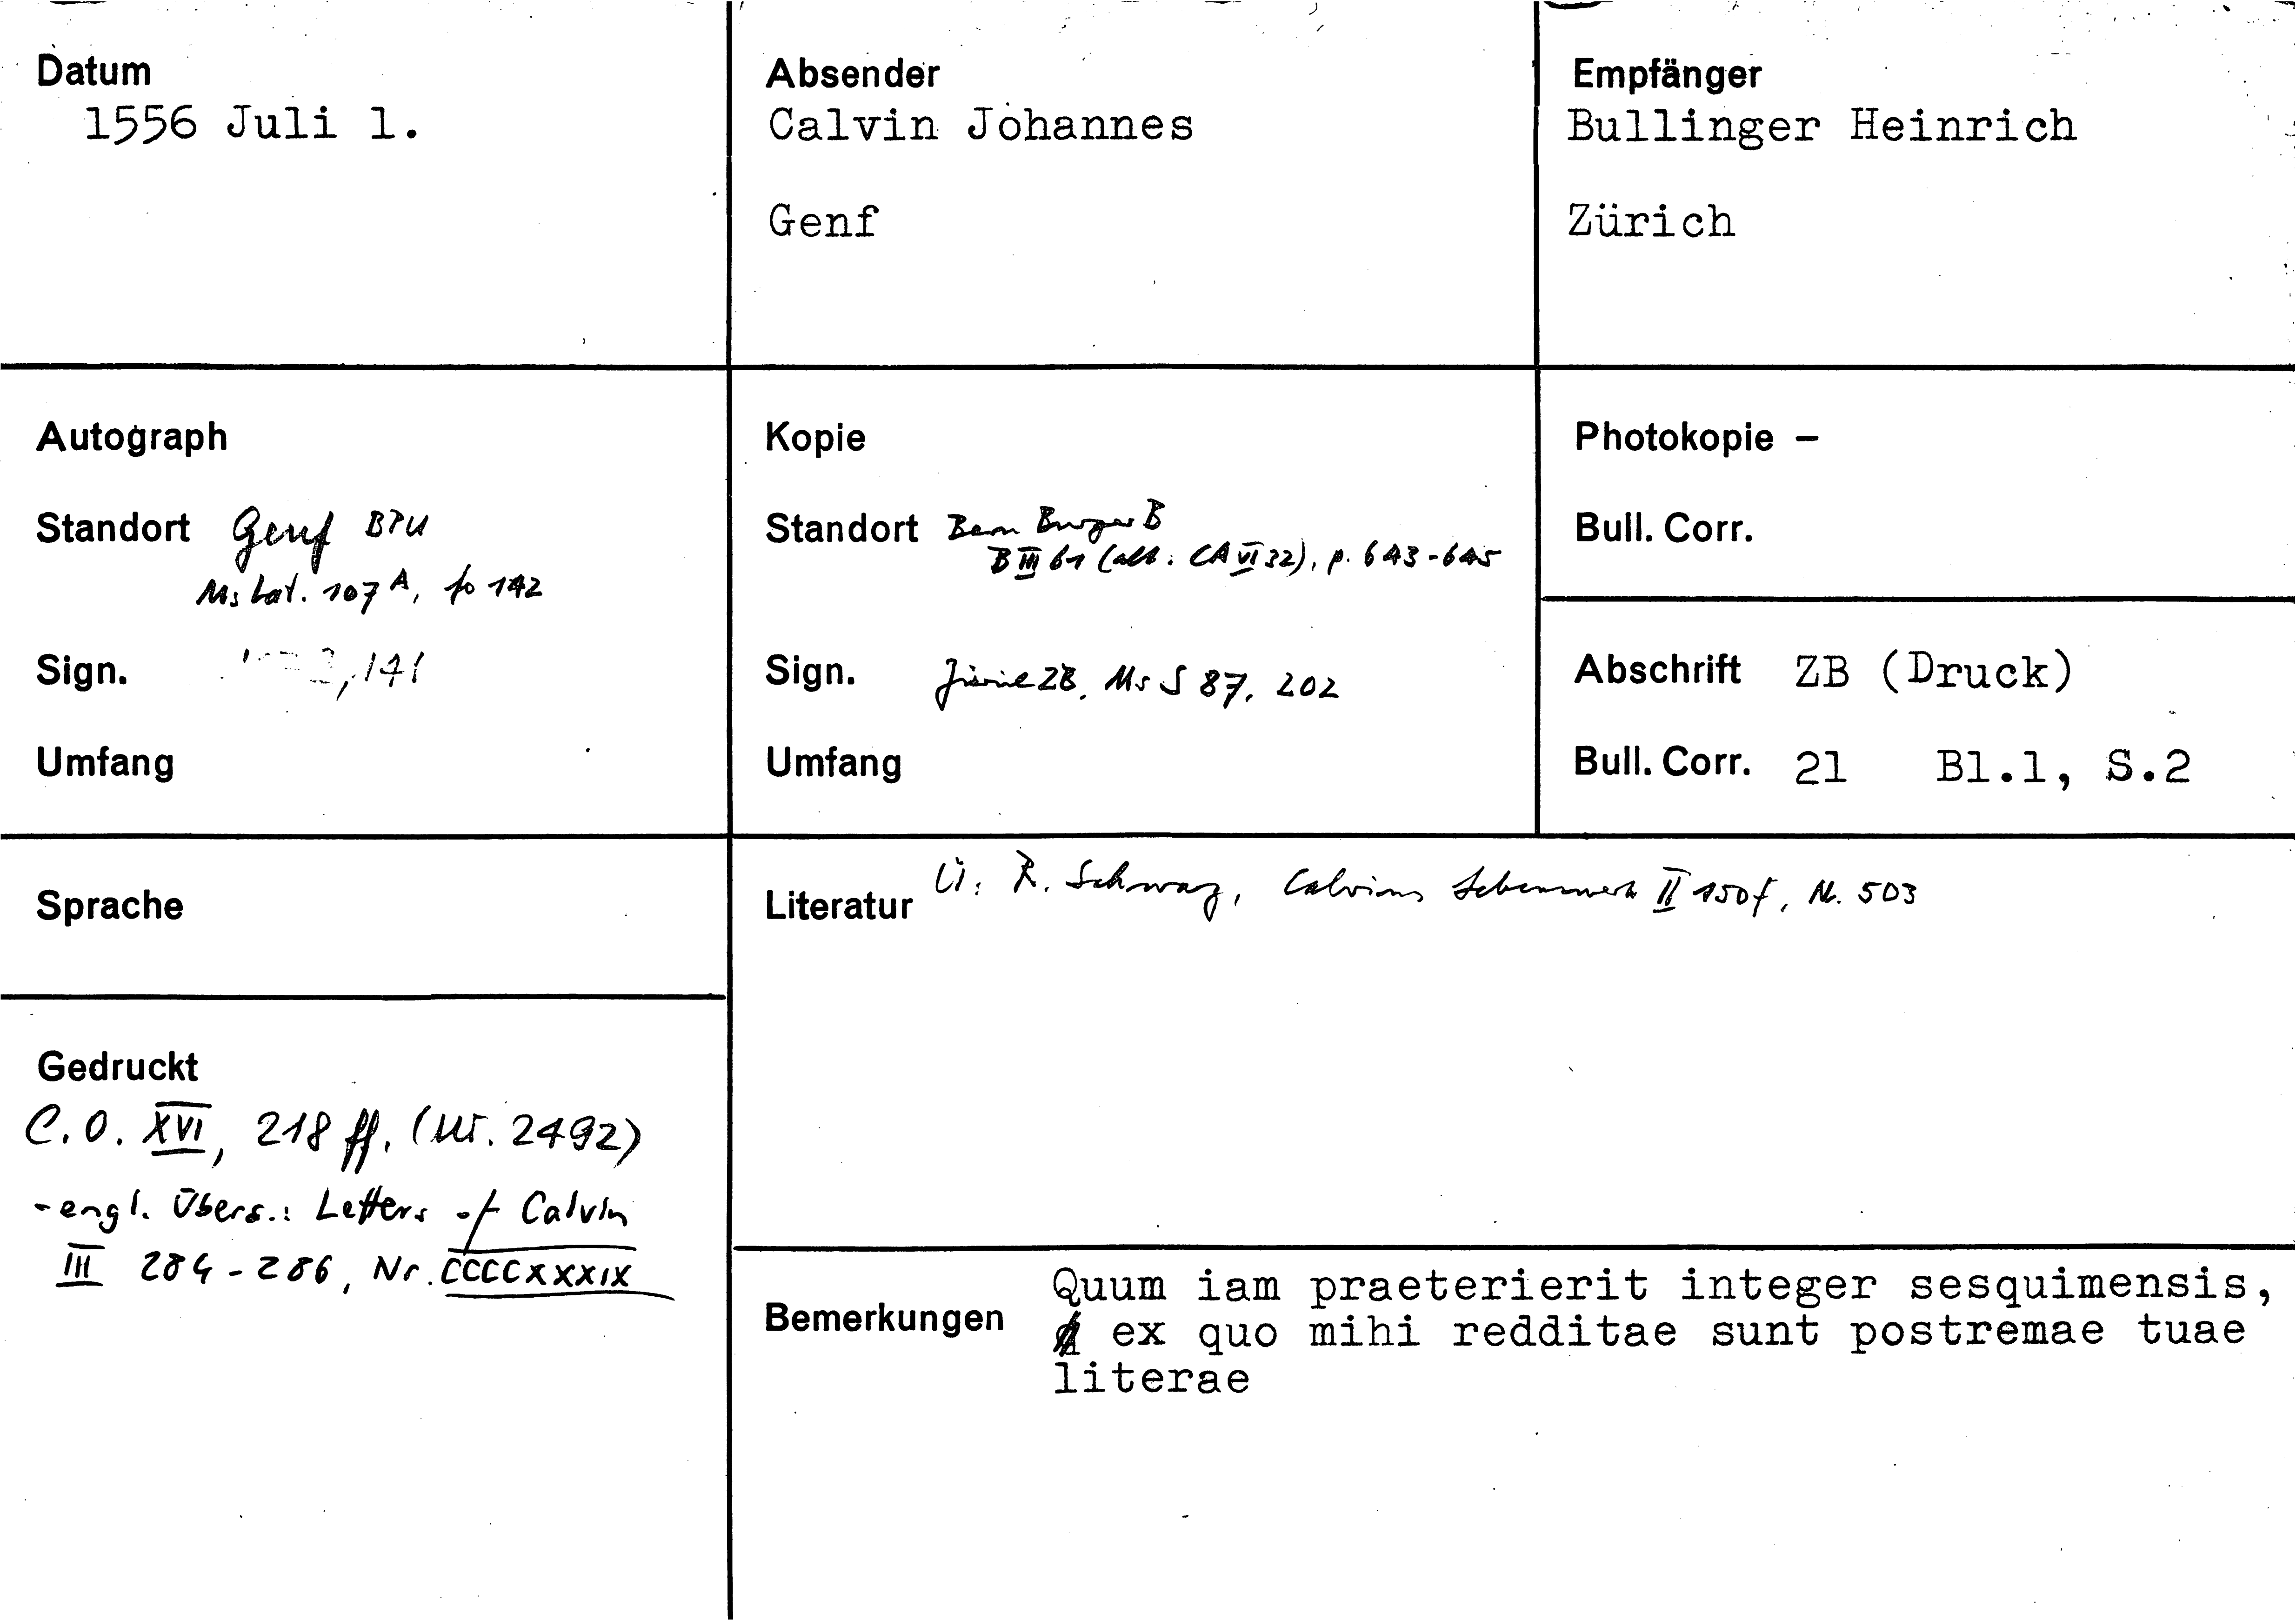 Datum
1556 Juli 1.
Absender
Calvin Johannes
Genf
Empfänger
Bullinger Heinrich
Zürich
Autograph
Standort Genf BPU
Ms Lat. 107 A, fo 142
Sign. 141
Umfang
Kopie
Standort Bern Burger B
B III 61 (alt: CA VI 32), p. 643-645
Sign. Zürich ZB, Ms S 87, 202
Umfang
Photokopie –
Bull. Corr.
Abschrift ZB (Druck)
Bull. Corr. 21 Bl.1, S.2
Sprache
Literatur Ü: R. Schwarz, Calvins Lebenswerk II 150f, Nr. 503
Gedruckt
C.O. XVI, 218 ff. (Nr. 2492)
- engl. Übers.: Letters of Calvin
III 284-286, Nr. CCCCXXXIX
Bemerkungen Quum iam praeterierit integer sesquimensis,
ex quo mihi redditae sunt postremae tuae
literae